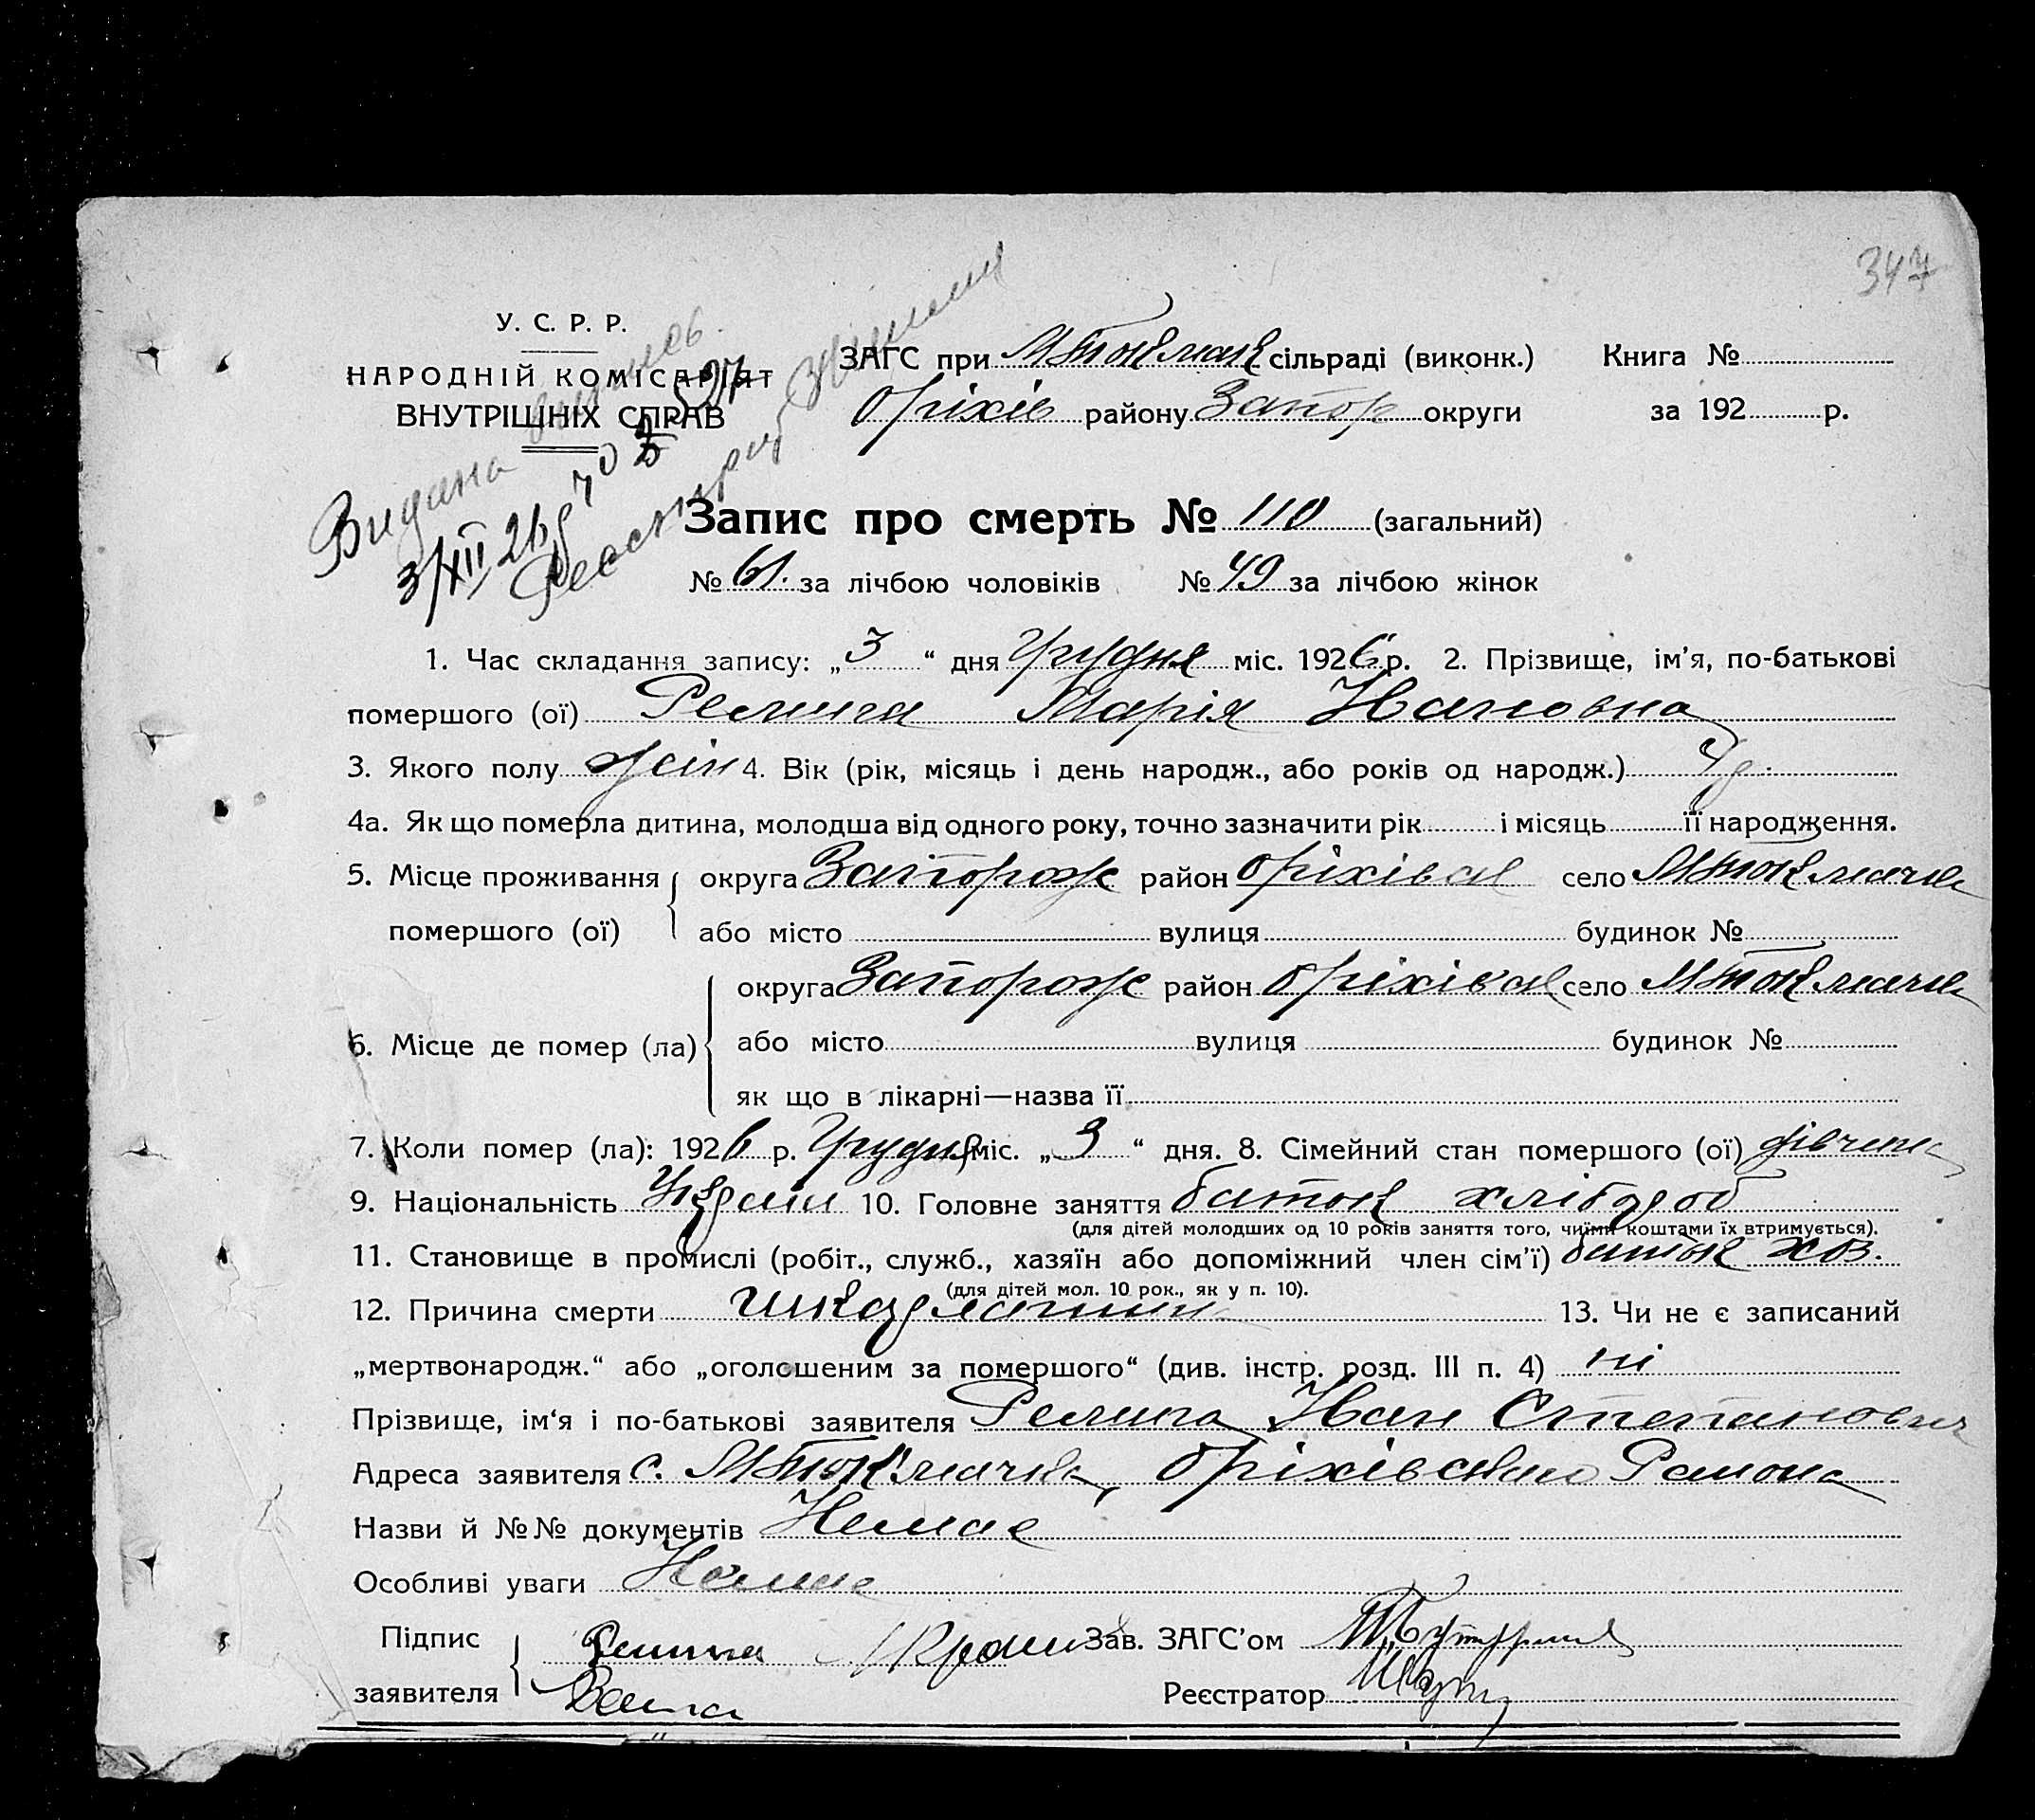 347
У. С. Р. Р.
НАРОДНІЙ КОМІСАРІЯТ
ВНУТРІШНІХ СПРАВ
Видана
3/XII 26 р
ЗАГС при М Токмак сільраді (виконк.) Книга №
Оріхів району Запор округи за 192 р.
Запис про смерть № 110 (загальний)
№ 61. за лічбою чоловіків № 49 за лічбою жінок
1. Час складання запису: „3“ дня Грудня міс. 1926 р. 2. Прізвище, ім'я, по-батькові
помершого (ої) Ремига Марія Ивановна
3. Якого полу жін 4. Вік (рік, місяць і день народж., або років од народж.) 4 р.
4а. Як що померла дитина, молодша від одного року, точно зазначити рік і місяць її народження.
5. Місце проживання округа Запорож район Оріхівск село М Токмачка
помершого (ої) або місто вулиця будинок №
округа Запорож район Оріхівск село М Токмачка
6. Місце де помер (ла) або місто вулиця будинок №
як що в лікарні—назва її
7. Коли помер (ла): 1926 р. Грудня міс. „3“ дня. 8. Сімейний стан помершого (ої) дівчина
9. Національність Україн 10. Головне заняття батьк хлібороб
(для дітей молодших од 10 років заняття того, чиїми коштами їх втримується).
11. Становище в промислі (робіт., служб., хазяїн або допоміжний член сім'ї) батьк хоз.
(для дітей мол. 10 рок., як у п. 10).
12. Причина смерти шкарлатина 13. Чи не є записаний
„мертвонародж.“ або „оголошеним за помершого“ (див. інстр. розд. III п. 4) ні
Прізвище, ім'я і по-батькові заявителя Ремига Иван Степанович
Адреса заявителя с. М Токмачка, Оріхівського Району
Назви й №№ документів Немає
Особливі уваги Немає
Підпис Зав. ЗАГС'ом
заявителя Реєстратор